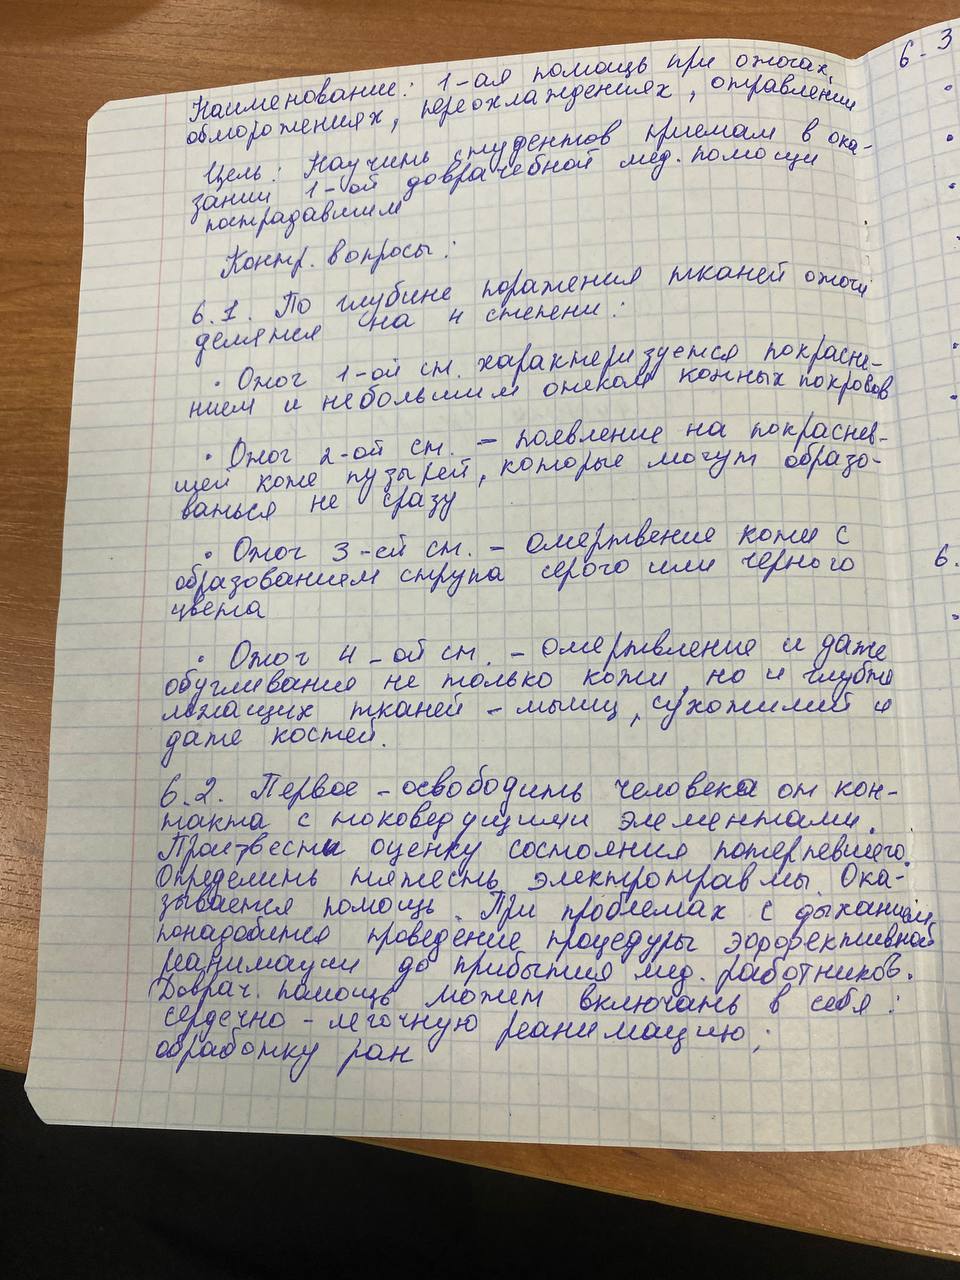 Наименование: 1-ая помощь при ожогах,
обморожениях, переохлаждениях, отравлении
Цель: Научить студентов приемам в ока-
зании 1-ой доврачебной мед. помощи
пострадавшим
Контр. вопросы:
6.1. По глубине поражения тканей ожоги
делятся на 4 степени:
• Ожог 1-ой ст. характеризуется покрасне-
нием и небольшим отеком кожных покровов
• Ожог 2-ой ст. – появление на покраснев-
шей коже пузырей, которые могут образо-
ваться не сразу
• Ожог 3-ей ст. – омертвение кожи с
образованием струпа серого или черного
цвета
• Ожог 4-ой ст. – омертвление и даже
обугливание не только кожи, но и глубже
лежащих тканей – мышц, сухожилий и
даже костей.
6.2. Первое – освободить человека от кон-
такта с токоведущими элементами.
Произвести оценку состояния потерпевшего.
Определить тяжесть электротравмы. Ока-
зывается помощь. При проблемах с дыханием
понадобится проведение процедуры эффективной
реанимации до прибытия мед. работников.
Доврач. помощь может включать в себя:
сердечно-легочную реанимацию;
обработку ран
6.3
6.